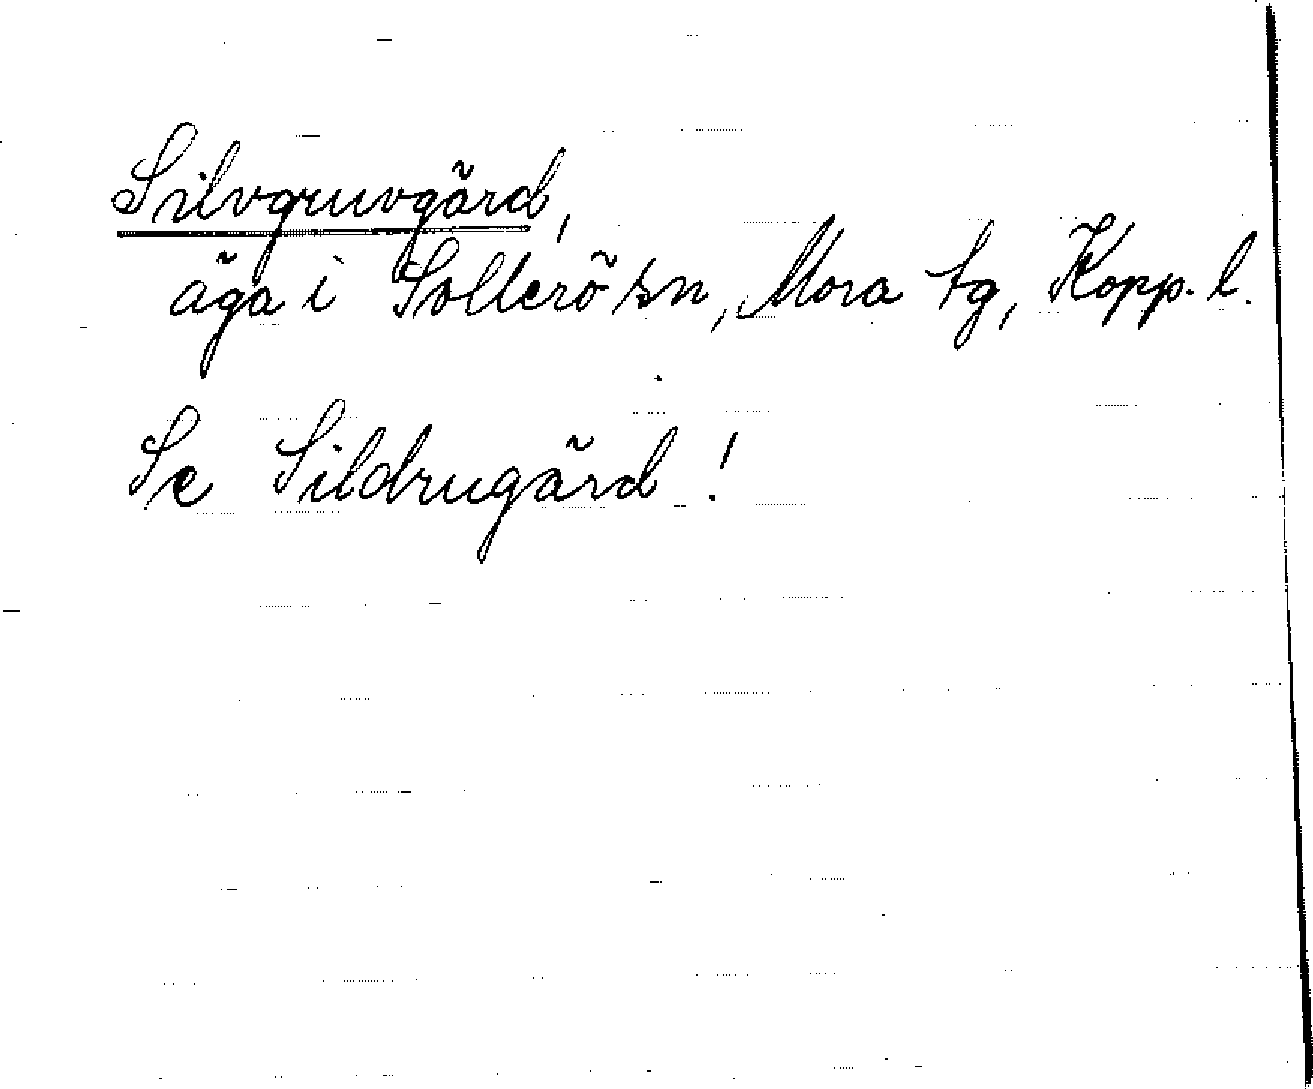 Silvgruvgärd,
äga i Sollerö sn, Mora tg, Kopp. l.
Se Sildrugärd!